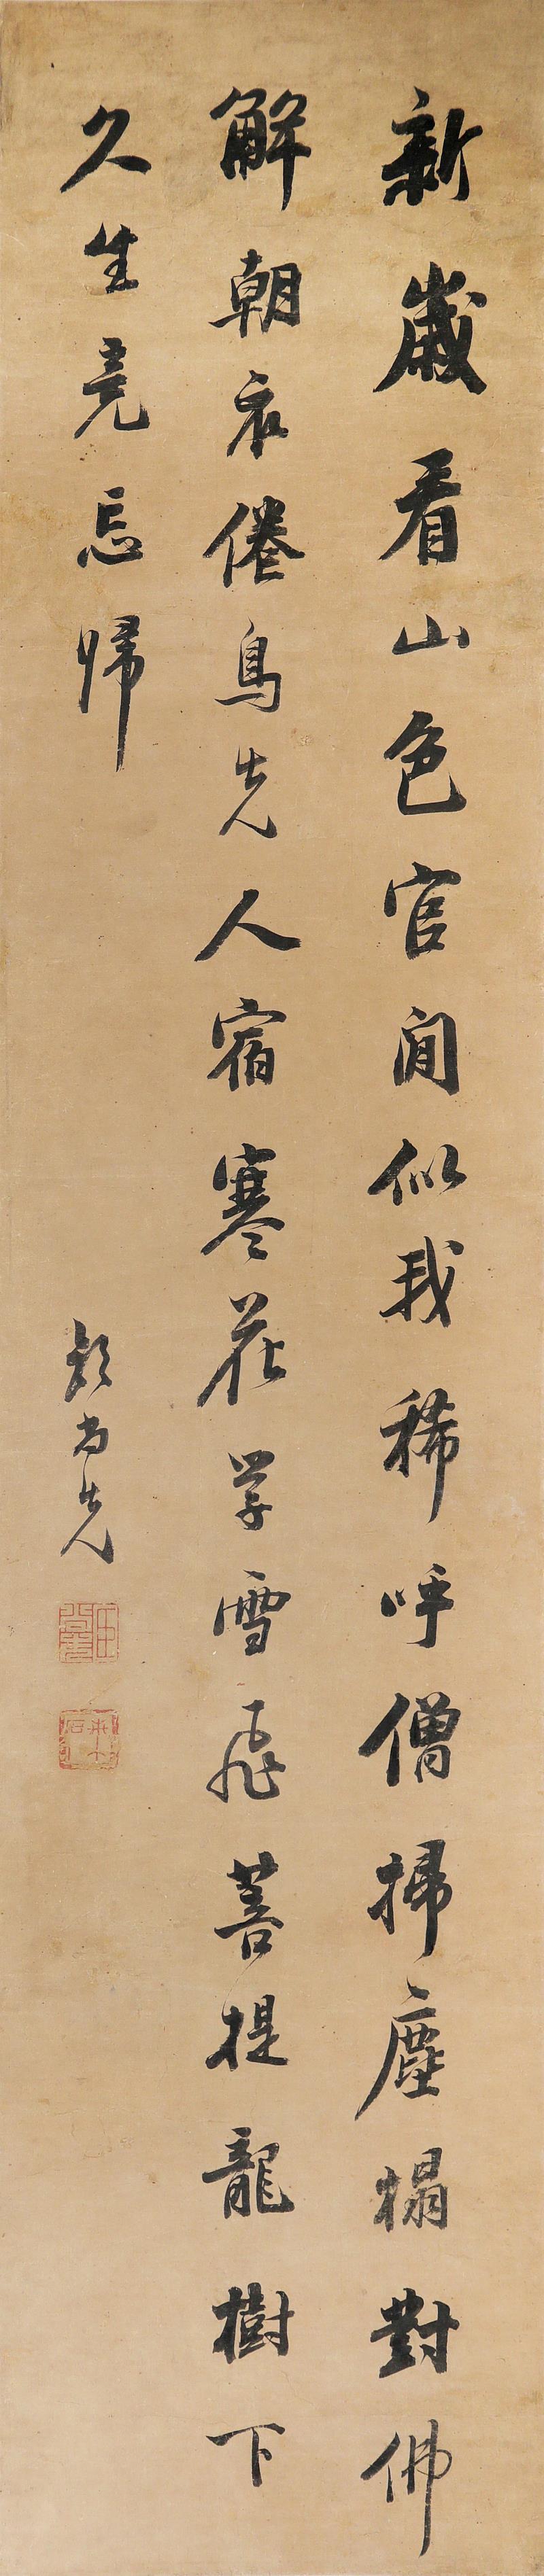 新歲看山色官閒似我稀呼僧掃塵榻對佛
解朝衣倦鳥先人宿寒花学雪飛菩提龍樹下
久坐竟忘歸
郭尚先